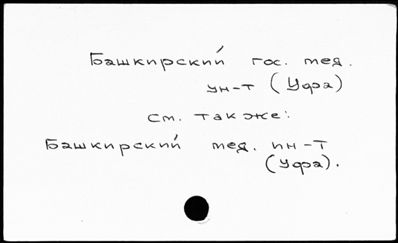 Башкирский гос. мед.
ун-т (Уфа)
см. также:
Башкирский мед. ин-т
(Уфа).